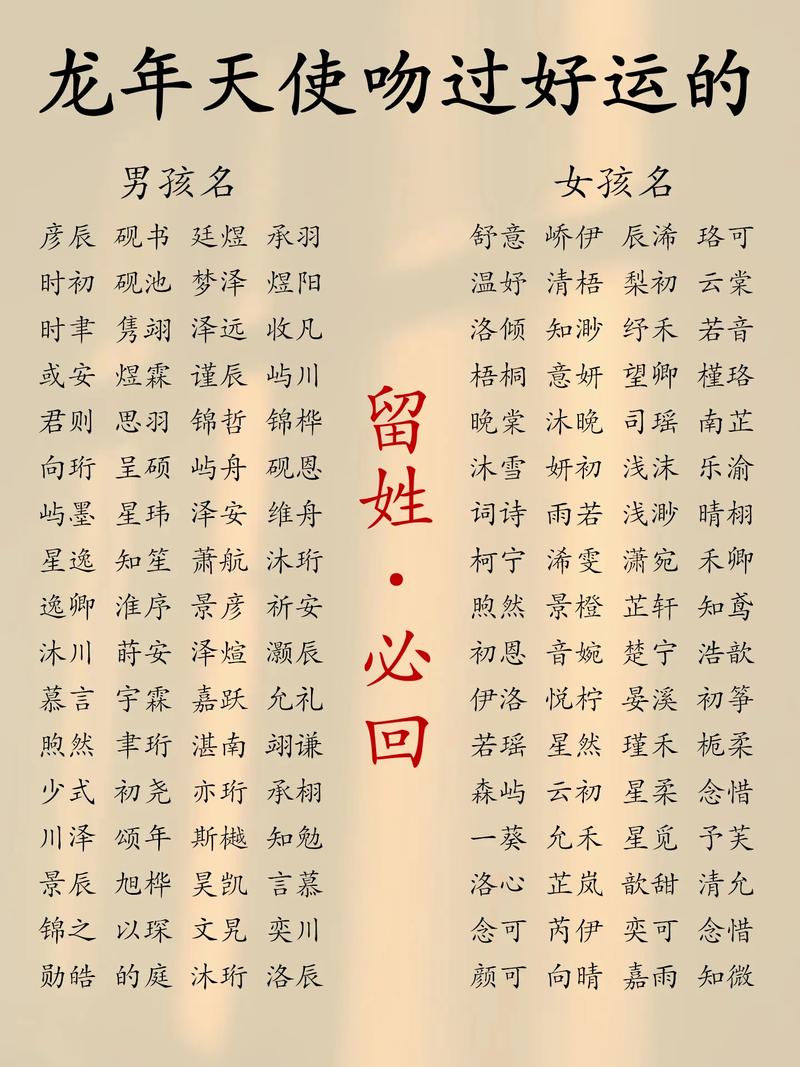 龙年天使吻过好运的
男孩名
彦辰 砚书 廷煜 承羽
时初 砚池 梦泽 煜阳
时聿 隽翊 泽远 收凡
或安 煜霖 谨辰 屿川
君则 思羽 锦哲 锦桦
向珩 呈硕 屿舟 砚恩
屿墨 星玮 泽安 维舟
星逸 知笙 萧航 沐珩
逸卿 淮序 景彦 祈安
沐川 莳安 泽煊 灏辰
慕言 宇霖 嘉跃 允礼
煦然 聿珩 湛南 翊谦
少式 初尧 亦珩 承栩
川泽 颂年 斯樾 知勉
景辰 旭桦 昊凯 言慕
锦之 以琛 文晃 奕川
勋皓 的庭 沐珩 洛辰
留姓·必回
女孩名
舒意 峤伊 辰浠 珞可
温妤 清梧 梨初 云棠
洛倾 知渺 纾禾 若音
梧桐 意妍 望卿 槿珞
晚棠 沐晚 司瑶 南芷
沐雪 妍初 浅沫 乐渝
词诗 雨若 浅渺 晴栩
柯宁 浠雯 潇宛 禾卿
煦然 景橙 芷轩 知鸢
初恩 音婉 楚宁 浩歆
伊洛 悦柠 晏溪 初筝
若瑶 星然 瑾禾 栀柔
森屿 云初 星柔 念惜
一葵 允禾 星觅 予芙
洛心 芷岚 歆甜 清允
念可 芮伊 奕可 念惜
颜可 向晴 嘉雨 知微